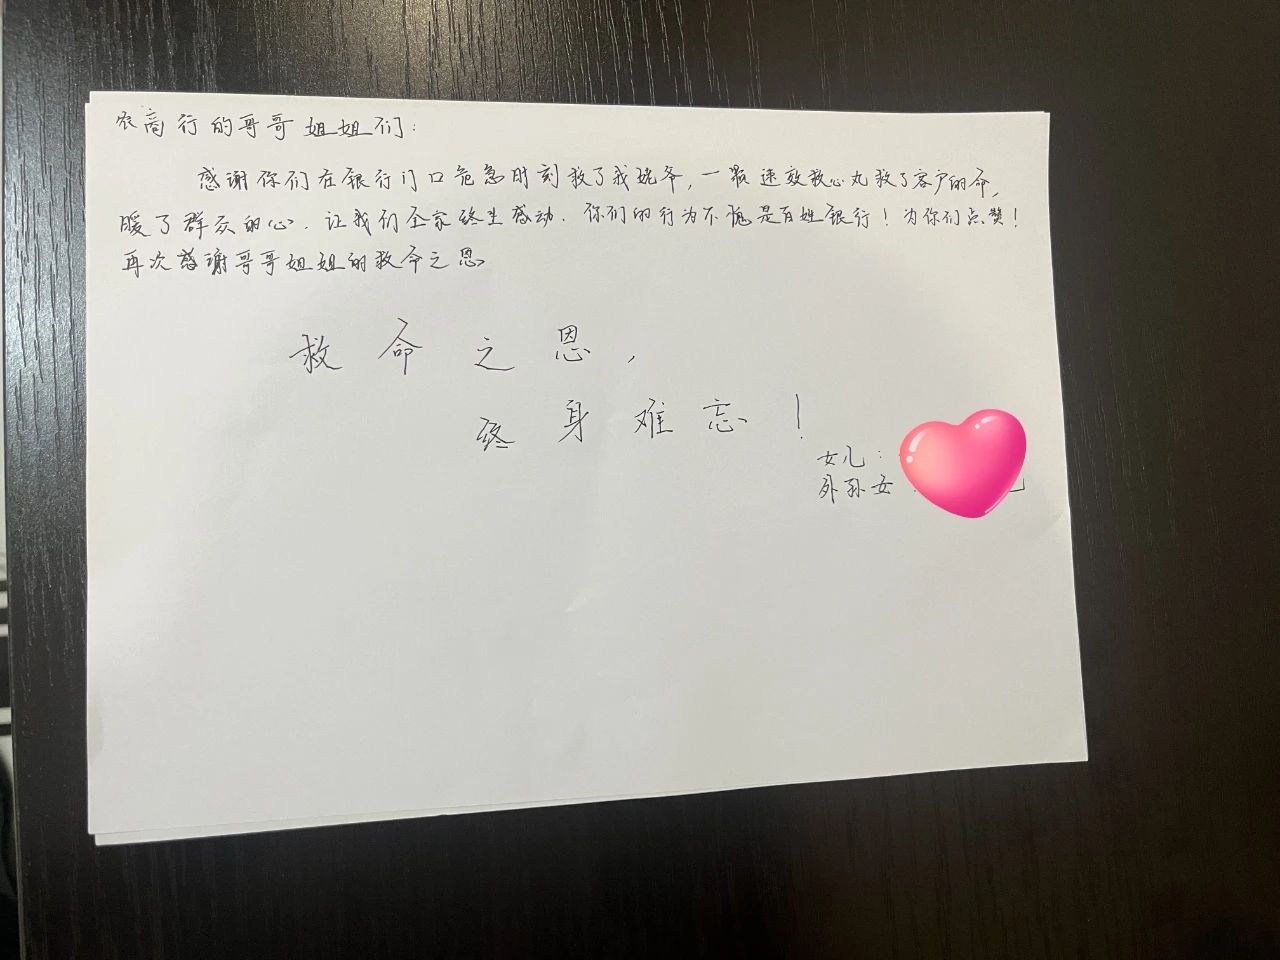 农商行的哥哥姐姐们:
感谢你们在银行门口危急时刻救了我姥爷,一瓶速效救心丸救了客户的命,
暖了群众的心.让我们全家终生感动.你们的行为不愧是百姓银行!为你们点赞!
再次感谢哥哥姐姐的救命之恩
救命之恩,
终身难忘!
女儿:
外孙女